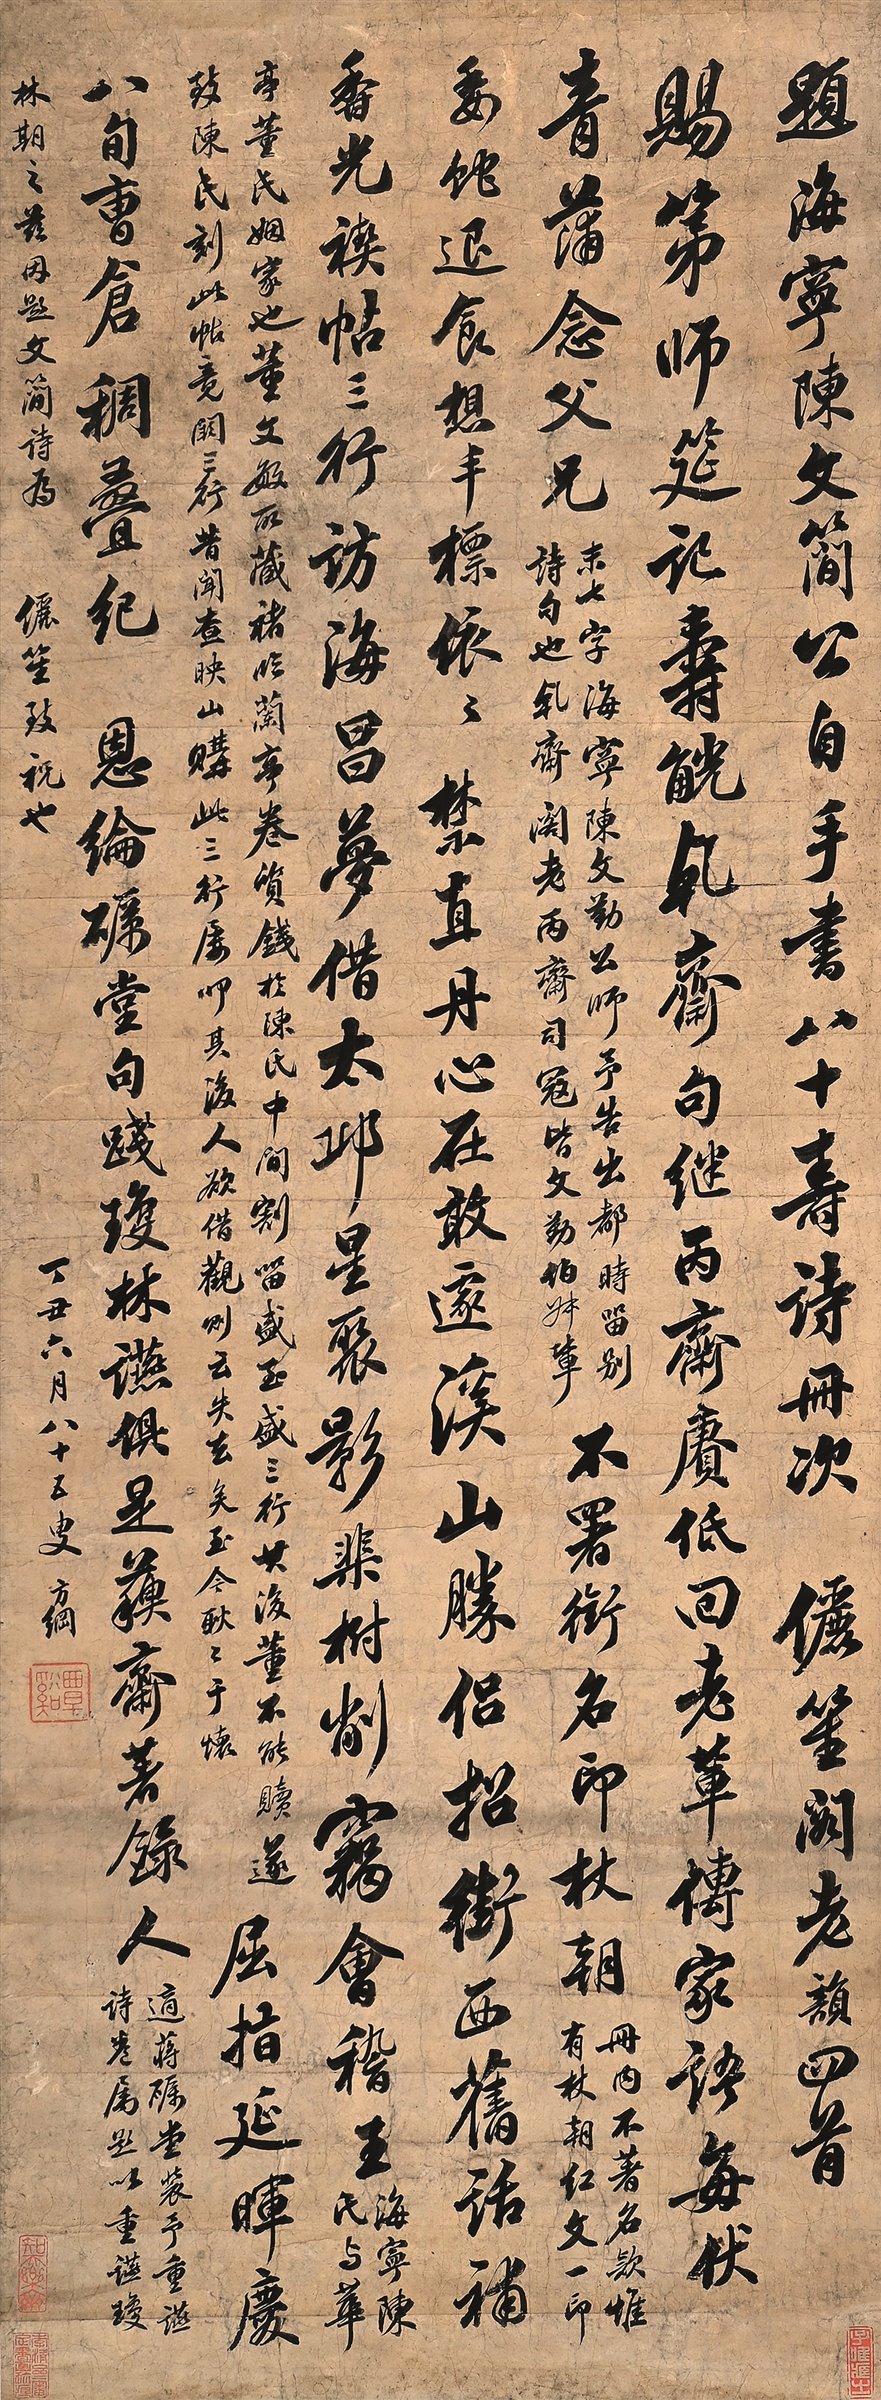 題海寧陳文簡公自手書八十壽詩冊次　儷笙閣老韻四首
賜第師筵記壽觥乹齋句繼丙齋賡低回老輩傳家語每伏
青蒲念父兄
末七字海寧陳文勤公師予告出都時留别
詩句也乹齋閣老丙齋司寇皆文勤伯叔輩
不署銜名印杖朝
冊内不著名欵惟
有杖朝仁文一印
委蛇退食想丰標依〻禁直丹心在敢邃溪山勝侣招街西舊話補
香光禊帖三行訪海昌夢借太邱星聚影棐树削竊會稽王
海寧陳
氏與華
亭董氏姻家也董文敏所藏褚临蘭亭卷質錢於陳氏中間割留盛至盛三行其後董不能贖遂
致陳氏刻此帖竟闕三行昔聞查映山購此三行屢叩其後人欲借觀則云失去矣至今耿〻于懷
屈指延暉慶
八旬曹倉稠疊紀　恩綸礪堂句踐瓊林讌俱是蘓齋著錄人
適蔣礪堂裝予重讌
詩卷属題以重讌瓊
林期之茲因題文簡詩為　儷笙致祝也
丁丑六月八十五叟方綱
覃谿